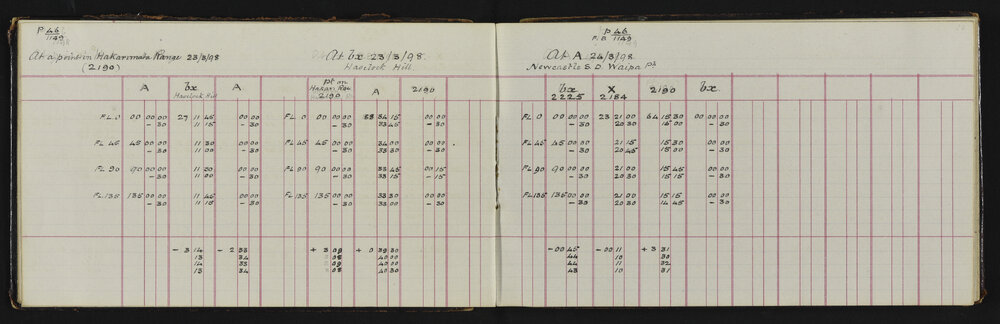 P 46
1149
At a point in Hakarimata Range 23/3/98
(2190)
At bx 23/3/98
Havelock Hill
A bx A
Havelock Hill
pt on
2190 A 2190
FL 0 00 00 00 27 11 45 00 00
- 30 11 15 - 30
FL 45 45 00 00 11 30 00 00
- 30 11 00 - 30
FL 90 90 00 00 11 30 00 00
- 30 11 00 - 30
FL 135 135 00 00 11 45 00 00
- 30 11 15 - 30
- 3 14 - 2 33
13 34
14 33
13 34
FL 0 00 00 00 88 34 15 00 00
- 30 33 45 - 30
FL 45 45 00 00 34 00 00 00
- 30 33 30 - 30
FL 90 90 00 00 33 45 00 15
- 30 33 15 - 15
FL 135 135 00 00 33 30 00 00
- 30 33 00 - 30
+ 3 09 + 0 39 30
08 40 00
09 40 00
08 40 30
P 46
F.B. 1149
At A 24/3/98
Newcastle S.D. Waipa
bx X 2190 bx
2225 2184
FL 0 00 00 00 23 21 00 64 15 30 00 00
- 30 20 30 15 00 - 30
FL 45 45 00 00 21 15 15 30 00 00
- 30 20 45 15 00 - 30
FL 90 90 00 00 21 00 15 45 00 00
- 30 20 30 15 15 - 30
FL 135 135 00 00 21 00 15 15 00 00
- 30 20 30 14 45 - 30
- 00 45 - 00 11 + 3 31
44 10 30
44 11 32
43 10 31